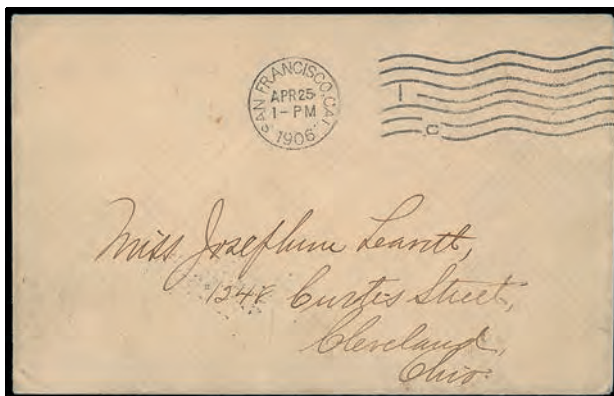 SAN FRANCISCO, CAL.
APR 25
1-PM
1906
1
C
Miss Josephine Leavitt,
1248 Curtis Street,
Cleveland,
Ohio.